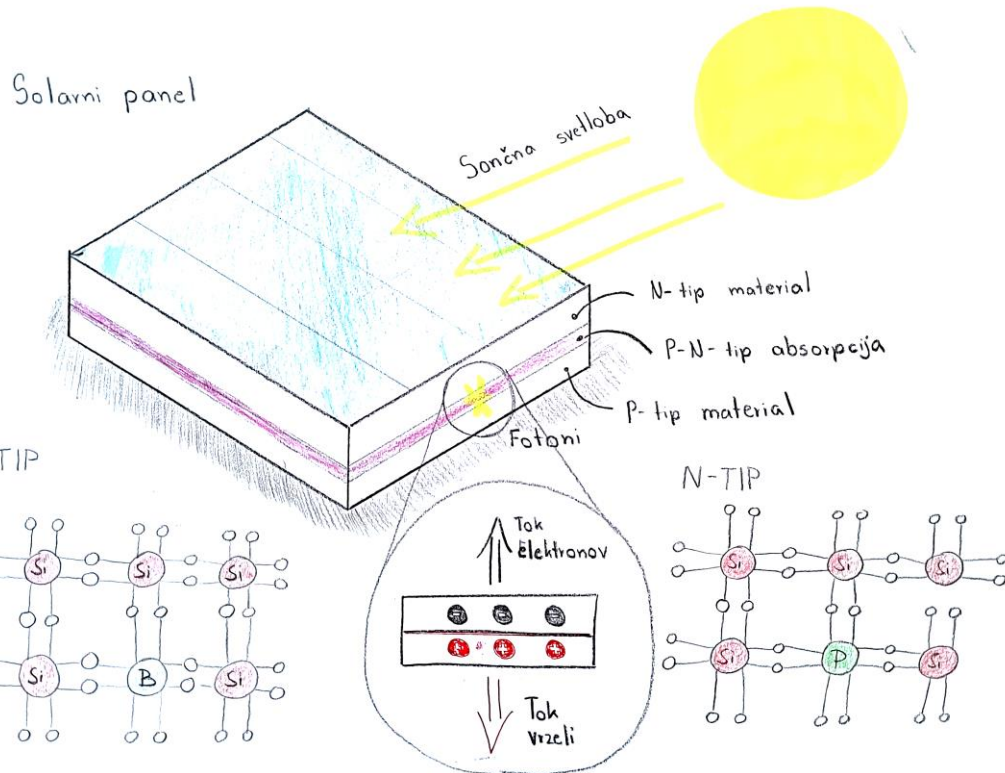 Solarni panel
Sončna svetloba
N-tip material
P-N-tip absorpcija
P-tip material
Fotoni
TIP
Si Si Si
Si B Si
Tok
elektronov
- - -
+ + +
Tok
vrzeli
N-TIP
Si Si Si
Si P Si